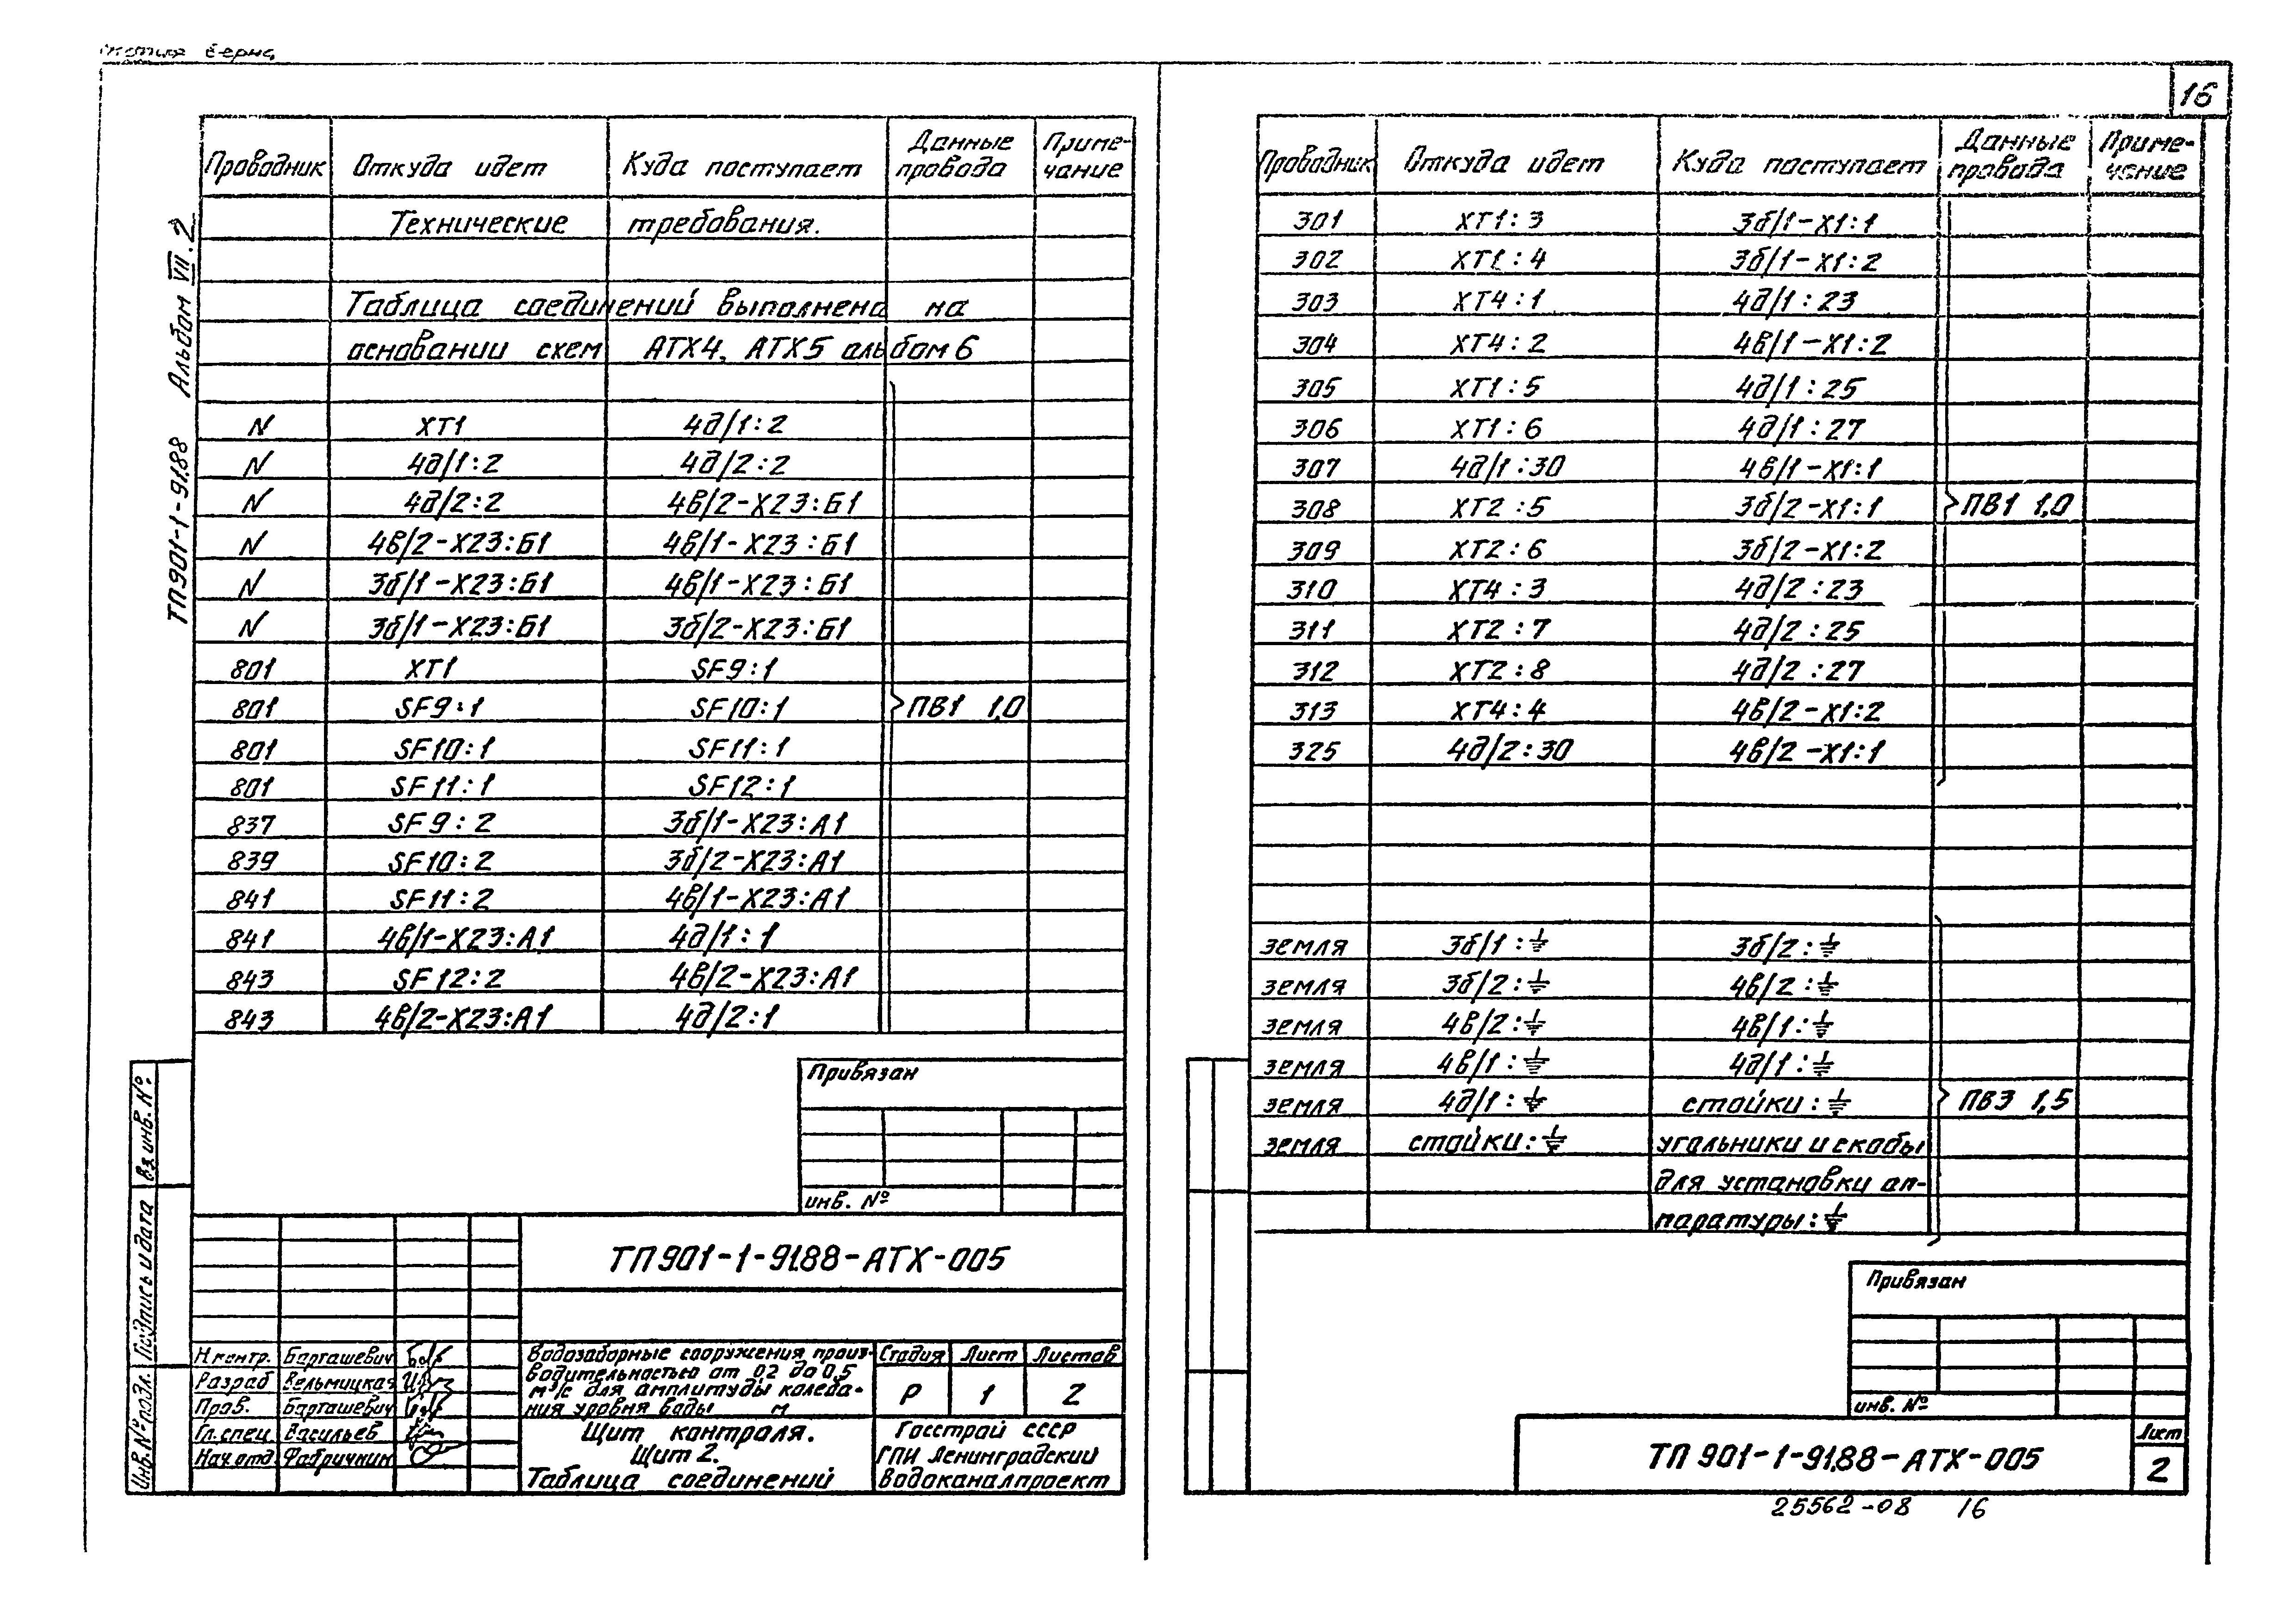 16
ТП901-1-91.88 Альбом VII.2
Проводник Откуда идет Куда поступает Данные провода Приме-чание
Технические требования.
Таблица соединений выполнена на
основании схем АТХ4, АТХ5 альбом 6
N ХТ1 4д/1:2
N 4д/1:2 4д/2:2
N 4д/2:2 4в/2-Х23:Б1
N 4в/2-Х23:Б1 4в/1-Х23:Б1
N 3б/1-Х23:Б1 4в/1-Х23:Б1
N 3б/1-Х23:Б1 3б/2-Х23:Б1
801 ХТ1 SF9:1
801 SF9:1 SF10:1 ПВ1 1,0
801 SF10:1 SF11:1
801 SF11:1 SF12:1
837 SF9:2 3б/1-Х23:А1
839 SF10:2 3б/2-Х23:А1
841 SF11:2 4в/1-Х23:А1
841 4в/1-Х23:А1 4д/1:1
843 SF12:2 4в/2-Х23:А1
843 4в/2-Х23:А1 4д/2:1
Привязан
инв. №
Инв. № подл. Подпись и дата Вз инв. №
ТП901-1-91.88-АТХ-005
Н.контр. Барташевич
Разраб Вельмицкая
Пров. Барташевич
Гл.спец. Васильев
Нач.отд Фабричнин
Водозаборные сооружения произ-
водительностью от 0,2 до 0,5
м³/с для амплитуды колеба-
ния уровня воды м
Стадия Лист Листов
Р 1 2
Щит контроля.
Щит 2.
Таблица соединений
Госстрой СССР
ГПИ Ленинградский
Водоканалпроект
Проводник Откуда идет Куда поступает Данные провода Приме-чение
301 ХТ1:3 3б/1-Х1:1
302 ХТ1:4 3б/1-Х1:2
303 ХТ4:1 4д/1:23
304 ХТ4:2 4в/1-Х1:2
305 ХТ1:5 4д/1:25
306 ХТ1:6 4д/1:27
307 4д/1:30 4в/1-Х1:1
308 ХТ2:5 3б/2-Х1:1 ПВ1 1,0
309 ХТ2:6 3б/2-Х1:2
310 ХТ4:3 4д/2:23
311 ХТ2:7 4д/2:25
312 ХТ2:8 4д/2:27
313 ХТ4:4 4в/2-Х1:2
325 4д/2:30 4в/2-Х1:1
земля 3б/1:⏚ 3б/2:⏚
земля 3б/2:⏚ 4в/2:⏚
земля 4в/2:⏚ 4в/1:⏚
земля 4в/1:⏚ 4д/1:⏚
земля 4д/1:⏚ стойки:⏚ ПВ3 1,5
земля стойки:⏚ угольники и скобы
для установки ап-
паратуры:⏚
Привязан
инв. №
ТП 901-1-91.88-АТХ-005
Лист
2
25562-08 16